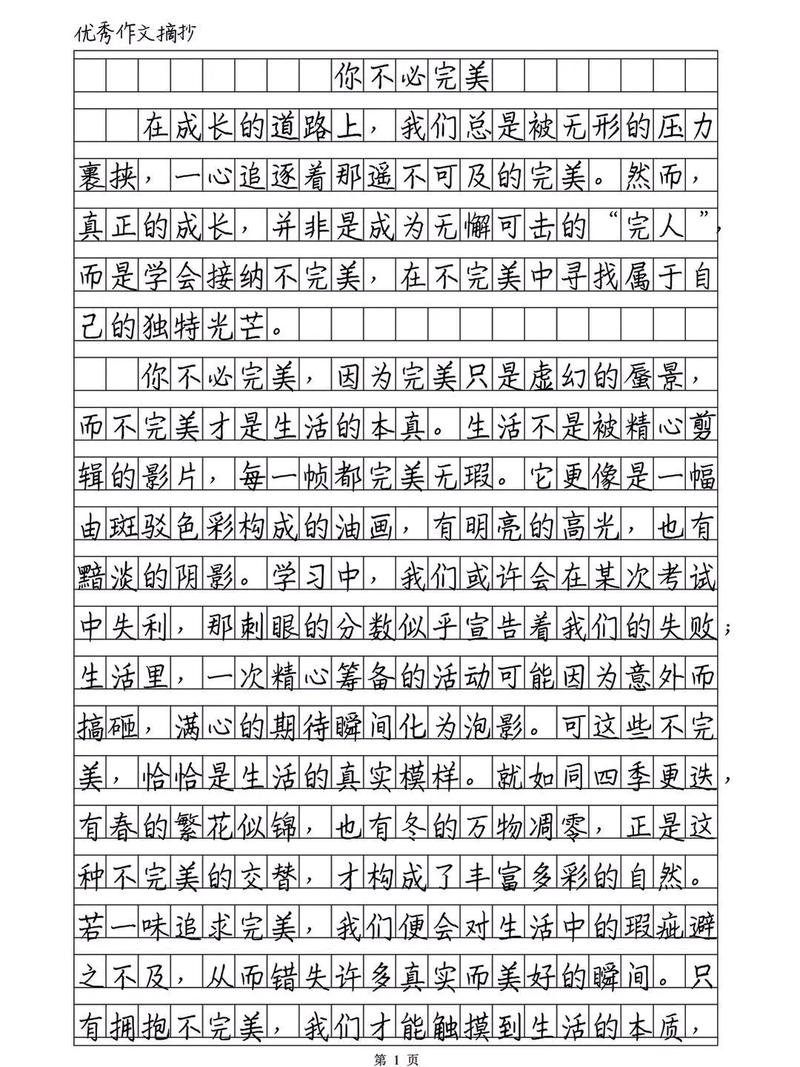 优秀作文摘抄
你不必完美
在成长的道路上，我们总是被无形的压力
裹挟，一心追逐着那遥不可及的完美。然而，
真正的成长，并非是成为无懈可击的“完人”，
而是学会接纳不完美，在不完美中寻找属于自
己的独特光芒。
你不必完美，因为完美只是虚幻的蜃景，
而不完美才是生活的本真。生活不是被精心剪
辑的影片，每一帧都完美无瑕。它更像是一幅
由斑驳色彩构成的油画，有明亮的高光，也有
黯淡的阴影。学习中，我们或许会在某次考试
中失利，那刺眼的分数似乎宣告着我们的失败；
生活里，一次精心筹备的活动可能因为意外而
搞砸，满心的期待瞬间化为泡影。可这些不完
美，恰恰是生活的真实模样。就如同四季更迭，
有春的繁花似锦，也有冬的万物凋零，正是这
种不完美的交替，才构成了丰富多彩的自然。
若一味追求完美，我们便会对生活中的瑕疵避
之不及，从而错失许多真实而美好的瞬间。只
有拥抱不完美，我们才能触摸到生活的本质，
第 1 页